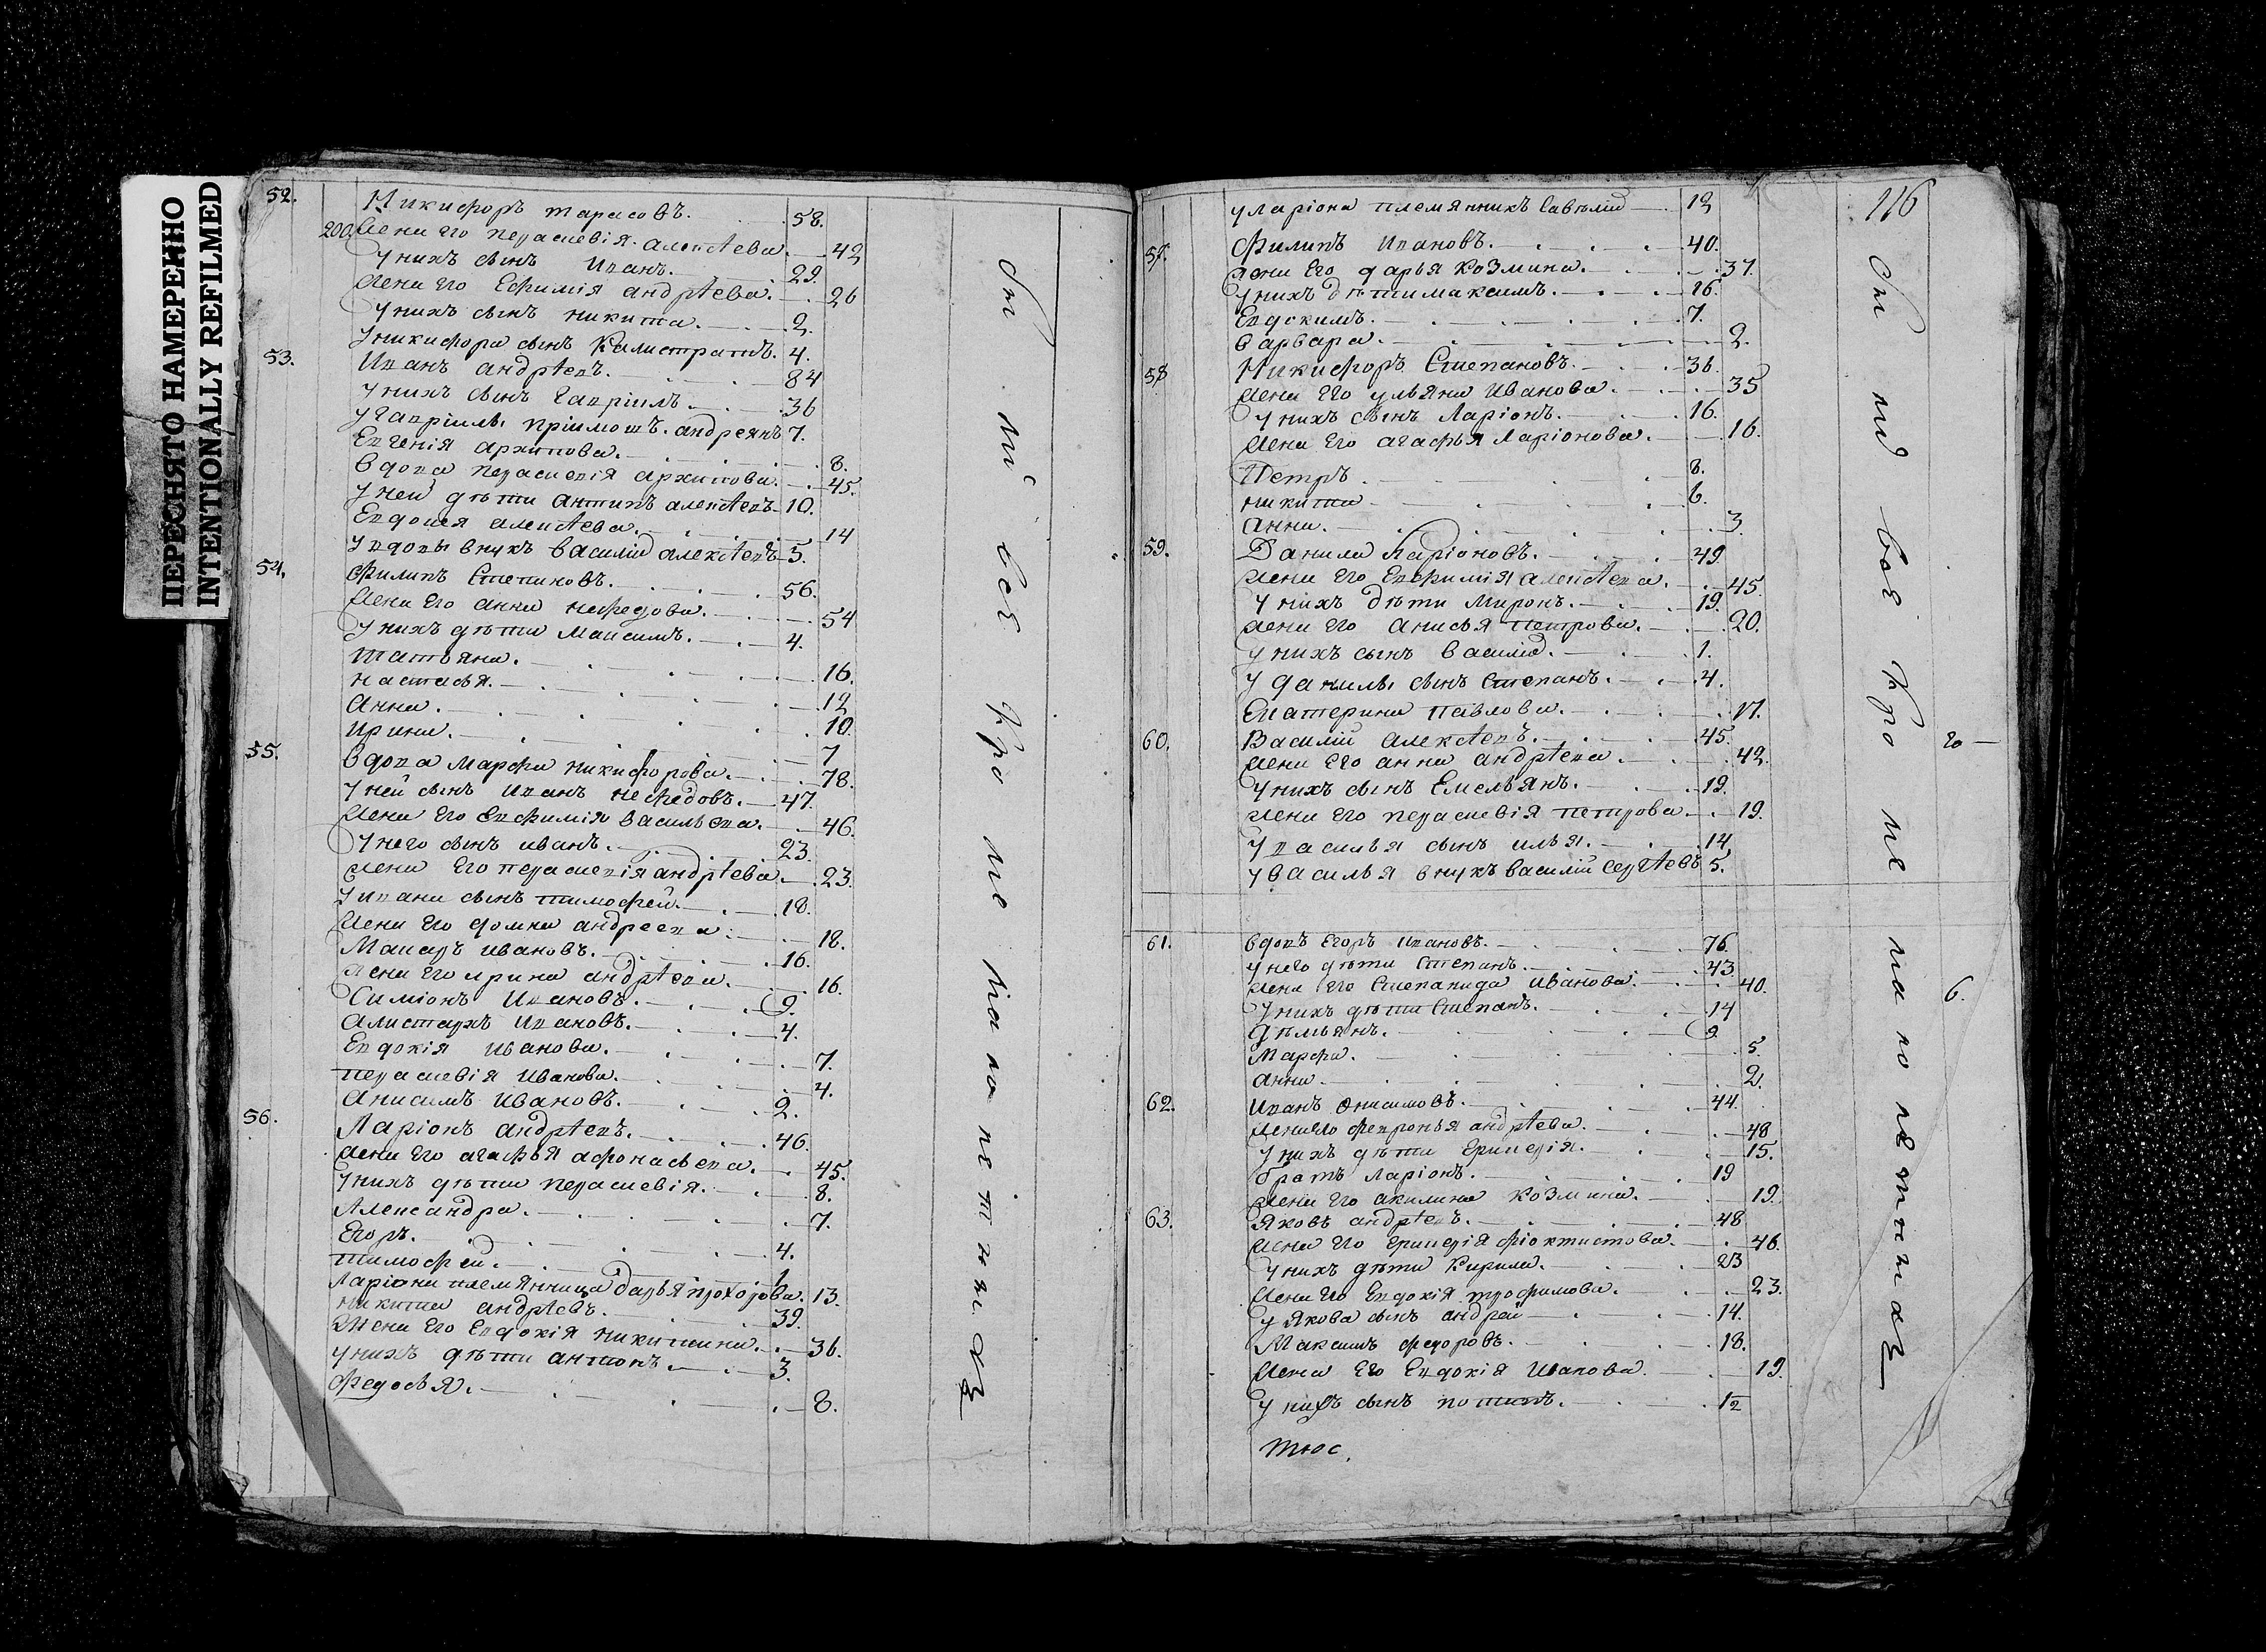 ПЕРЕСНЯТО НАМЕРЕННО
INTENTIONALLY REFILMED
52. Никифоръ тарасовъ. 58.
200. жена его парасковія алексѣева. 42
у нихъ сынъ Иванъ. 29.
жена его Ефимія андрѣева. 26
у нихъ сынъ никита. 2.
у никифора сынъ Калистратъ. 4.
53. Иванъ андрѣевъ. 84
у нихъ сынъ Гавріилъ. 36
у Гавріилы пріимошъ. андреянъ 7.
Евгенія архипова. 8.
вдова парасковія архипова. 45.
у ней дѣти антипъ алексѣевъ 10.
Евдокея алексѣева. 14
у вдовы внукъ василій алексѣевъ 5.
54. Филипъ Степановъ. 56.
жена его анна нефедова. 54
у нихъ дѣти Максимъ. 4.
татьяна. 16.
настасья. 12
Анна. 10.
ирина. 7
55. вдова Марфа никифорова. 78.
у ней сынъ Иванъ нефедовъ. 47.
жена его Евфимія васильева. 46.
у него сынъ иванъ. 23.
жена его парасковія андрѣева. 23.
у ивана сынъ тимофей. 18.
жена его домна андреева. 18.
Макаръ ивановъ. 16.
жена его ирина андрѣева. 16.
Симіонъ Ивановъ. 9.
Алистархъ Ивановъ. 4.
Евдокія иванова. 7.
парасковія Иванова. 4.
Анисимъ ивановъ. 2.
56. Ларіонъ андрѣевъ. 46.
жена его агафья афонасьева. 45.
у нихъ дѣти парасковія. 8.
Александра. 7.
Егоръ. 4.
тимофей. 1
Ларіона племянница дарья прохорова. 13.
никита андрѣевъ. 39.
Жена его Евдокія никитина. 36.
у нихъ дѣти антонъ. 3.
Федосья. 8.
всѣ Кро ме
116
у ларіона племянникъ Савѣлій 12
57. Филипъ Ивановъ. 40.
жена его дарья козмина. 37.
у нихъ дѣти максимъ. 16.
Евдокимъ. 7.
варвара. 2.
58 Никифоръ Степановъ. 36.
жена его ульяна Иванова. 35
у нихъ сынъ Ларіонъ. 16.
жена его агафья Ларіонова. 16.
Петръ. 8.
никита 6.
анна. 3.
59. Данила Ларіоновъ. 49.
жена его Евфимія алексѣева. 45.
у нихъ дѣти Миронъ. 19.
жена его анисья петрова. 20.
у нихъ сынъ василій. 1.
у данилы сынъ Степанъ. 4.
Екатерина павлова. 17.
60. Василій алексѣевъ. 45.
жена его анна андрѣева. 42.
у нихъ сынъ Емельянъ. 19.
жена его парасковія петрова 19.
у василья сынъ илья. 14
у василья внукъ василій сергѣевъ 5.
61. вдовъ Егоръ Ивановъ. 76.
у него дѣти Степанъ. 43.
жена его Степанида иванова. 40.
у нихъ дѣти Степанъ. 14
Демьянъ. 9
Марфа. 5.
анна. 2.
62. Иванъ Онисимовъ. 44.
жена его февронья андрѣева. 48
у нихъ дѣти 15.
братъ Ларіонъ. 19
жена его акилина козмина. 19.
63. Яковъ андрѣевъ. 48
жена его фіоктистова. 46.
у нихъ дѣти Кирила. 23
жена его Евдокія трофимова. 23.
у Якова сынъ андрей 14.
Максимъ федоровъ. 18.
жена его Евдокія Иванова. 19.
у нихъ сынъ потапъ. 12
тюс.
всѣ Кро ме
20
6.